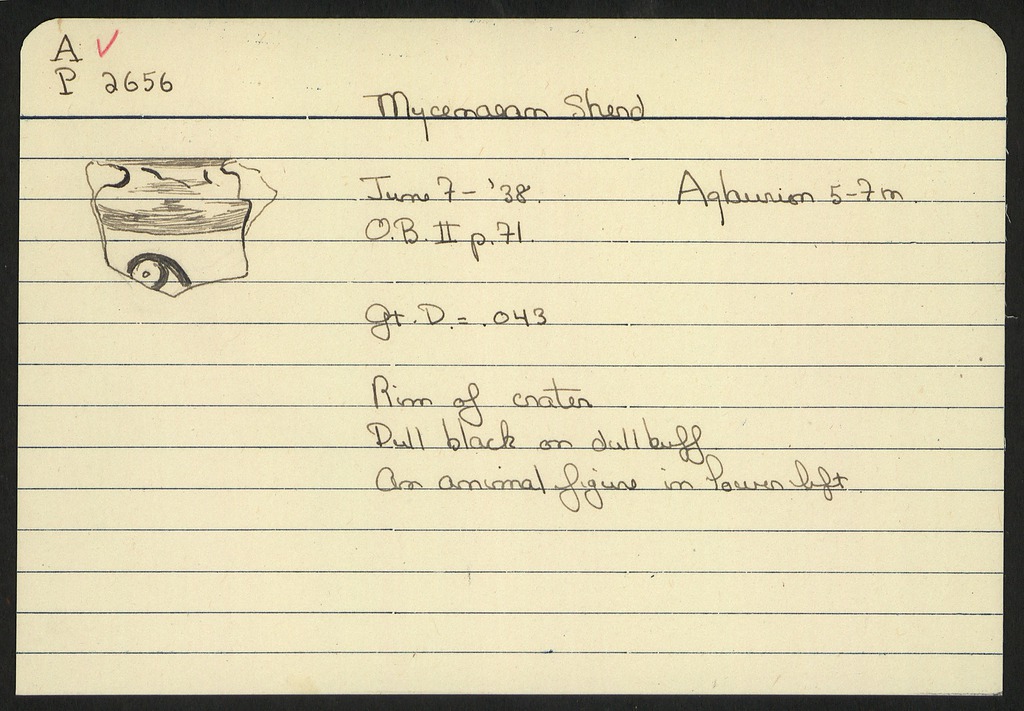 A ✓
P 2656
Mycenaean Sherd
June 7 - '38. Agbunion 5-7 m
O.B. II p. 71.
Gt. D. = .043
Rim of crater
Dull black on dull buff
An animal figure in lower left